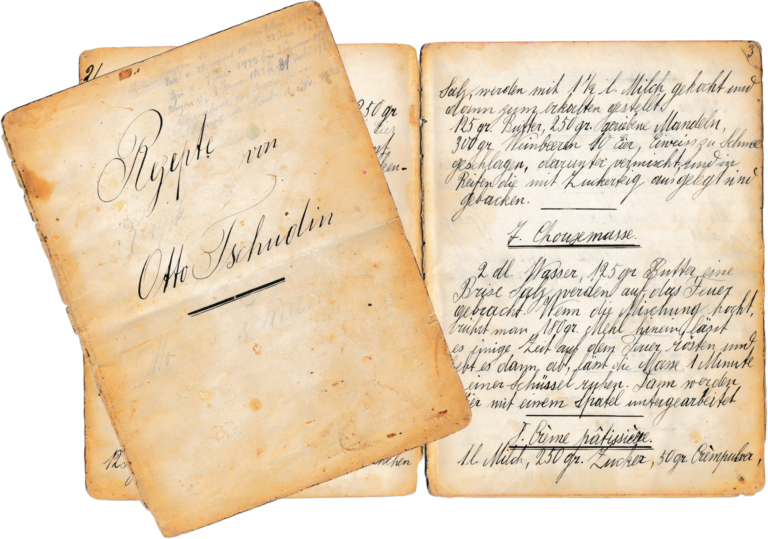 Rezepte von
Otto Tschudin
250 gr
12
3
Salz, werden mit 1½ l. Milch gekocht und
dann zum erkalten gestellt
125 gr. Butter, 250 gr. geriebene Mandeln,
300 gr. Weinbeeren 10 Eier, Eiweis zu Schnee
geschlagen, darunter vermischt, und in
Reifen die mit Zuckerteig ausgelegt sind
gebacken.
7. Chouxmasse.
2 dl. Wasser, 125 gr Butter, eine
Brise Salz, werden auf das Feuer
gebracht. Wenn die Mischung kocht,
rührt man 150 gr. Mehl hinein, lässt
es einige Zeit auf dem Feuer rösten und
es dann ab, lässt die Masse 1 Minute
einer Schüssel ruhen. Dann werden
mit einem Spatel untergearbeitet
Crème pâtissière.
1 l. Milch, 250 gr. Zucker, 50 gr. Crèmpulver,